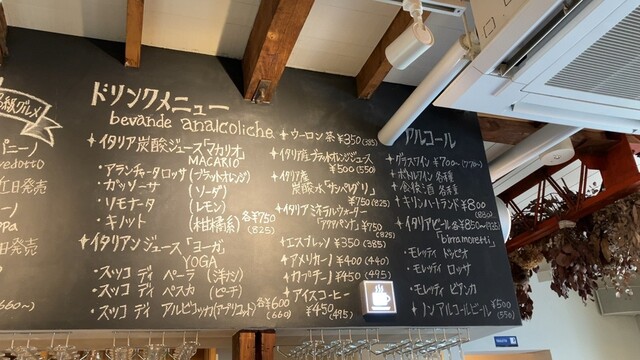 級グルメ
パニーノ
vedotto
近日発売
ドリンクメニュー
bevande analcoliche
✦イタリア炭酸ジュース「マカリオ」
MACARIO
・アランチャータロッサ(ブラッドオレンジ)
・ガッソーサ (ソーダ)
・リモナータ (レモン)
・キノット (柑橘系) 各¥750
(825)
✦イタリアンジュース「ヨーガ」
YOGA
・スッコ ディ ペーラ (洋ナシ)
・スッコ ディ ペスカ (ピーチ)
・スッコ ディ アルビコッカ(アプリコット) 各¥600
(660)
✦ウーロン茶 ¥350(385)
✦イタリア産ブラッドオレンジジュース
¥500(550)
✦イタリア産
炭酸水「サンペレグリノ」
¥750(825)
✦イタリアミネラルウォーター
「アクアパンナ」¥750
(825)
✦エスプレッソ ¥350(385)
✦アメリカーノ ¥400(440)
✦カプチーノ ¥450(495)
✦アイスコーヒー
¥450(495)
アルコール
✦グラスワイン ¥700~(770~)
✦ボトルワイン 各種
✦食後酒 各種
✦キリンハートランド ¥800
(880)
✦イタリアビール 各¥850(935)
「birra moretti」
・モレッティ ドッピオ
・モレッティ ロッサ
・モレッティ ビアンカ
✦ノンアルコールビール ¥500
(550)